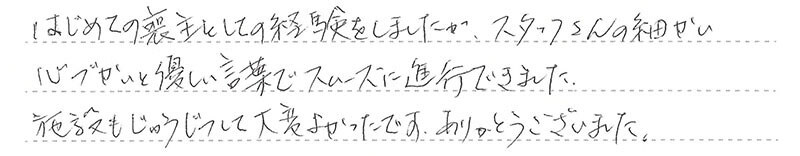 はじめての喪主としての経験をしましたが、スタッフさんの細かい
心づかいと優しい言葉でスムーズに進行できました.
施設もじゅうじつして大変よかったです.ありがとうございました。